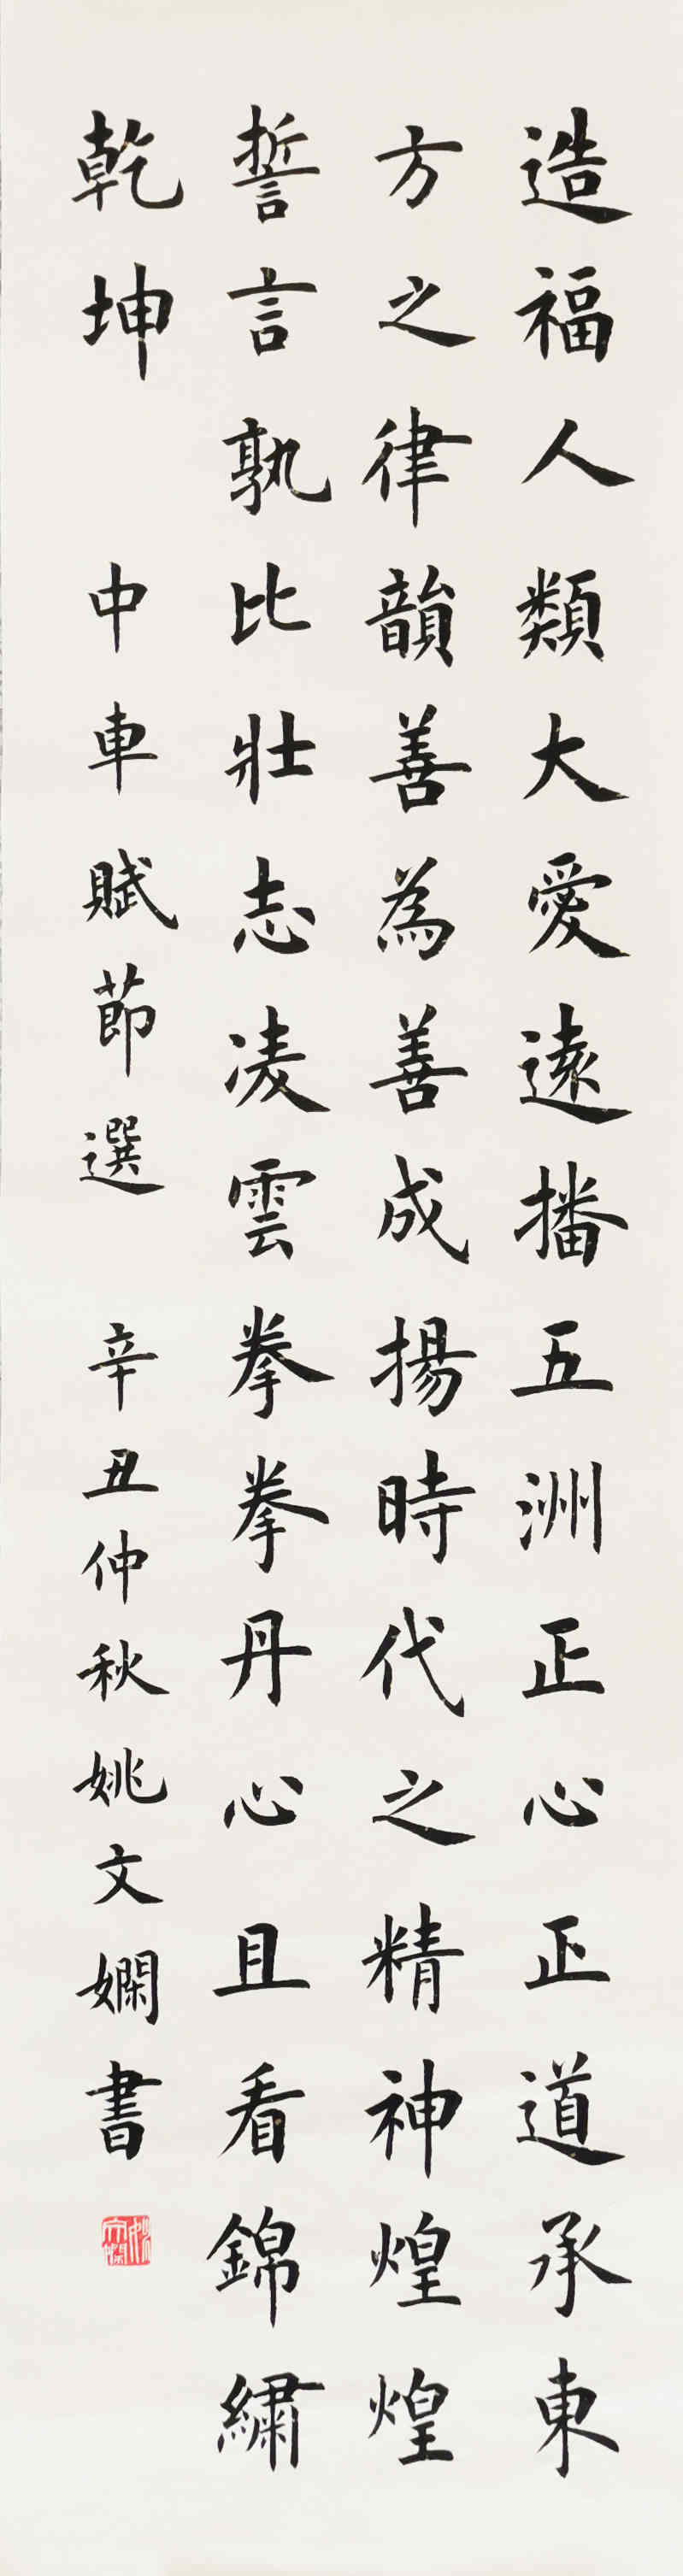 造福人類大愛遠播五洲正心正道承東
方之律韻善為善成揚時代之精神煌煌
誓言孰比壯志凌雲拳拳丹心且看錦繡
乾坤 中車賦節選 辛丑仲秋姚文嫻書
姚文嫻